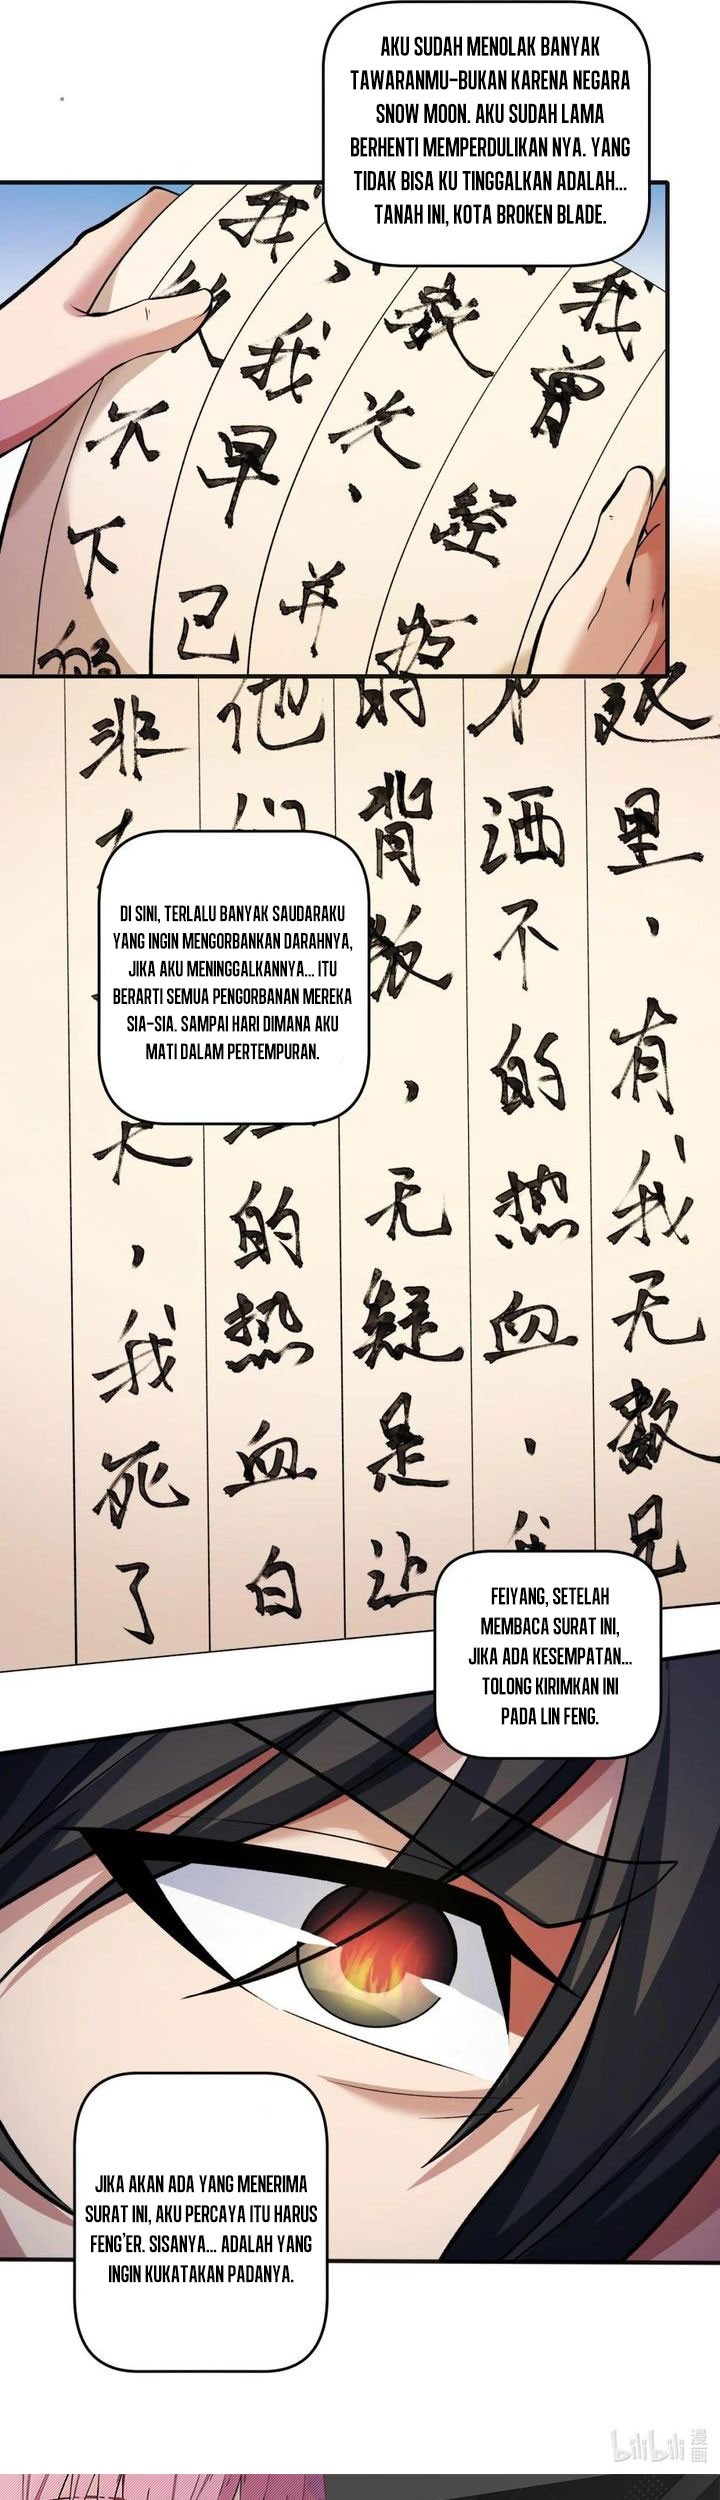 AKU SUDAH MENOLAK BANYAK
TAWARANMU-BUKAN KARENA NEGARA
SNOW MOON. AKU SUDAH LAMA
BERHENTI MEMPERDULIKAN NYA. YANG
TIDAK BISA KU TINGGALKAN ADALAH...
TANAH INI, KOTA BROKEN BLADE.
我曾经
我
我早已
放不下的
里,有我无数兄
洒不的热血,我
的背叛,无疑是让
他们的热血白
非,我死了
DI SINI, TERLALU BANYAK SAUDARAKU
YANG INGIN MENGORBANKAN DARAHNYA,
JIKA AKU MENINGGALKANNYA... ITU
BERARTI SEMUA PENGORBANAN MEREKA
SIA-SIA. SAMPAI HARI DIMANA AKU
MATI DALAM PERTEMPURAN.
FEIYANG, SETELAH
MEMBACA SURAT INI,
JIKA ADA KESEMPATAN...
TOLONG KIRIMKAN INI
PADA LIN FENG.
JIKA AKAN ADA YANG MENERIMA
SURAT INI, AKU PERCAYA ITU HARUS
FENG'ER. SISANYA... ADALAH YANG
INGIN KUKATAKAN PADANYA.
bilibili 漫画